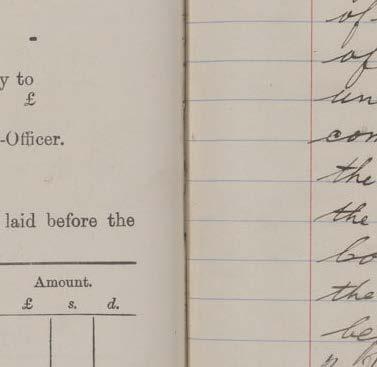 -
y to
£
-Officer.
laid before the
Amount.
£ s. d.
of
of
un
com
the
the
bo
the
be